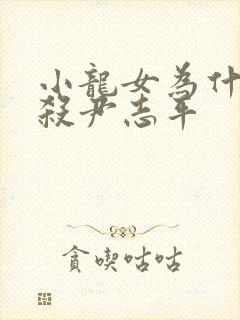 小龍女為什
殺尹志平
貪喫咕咕